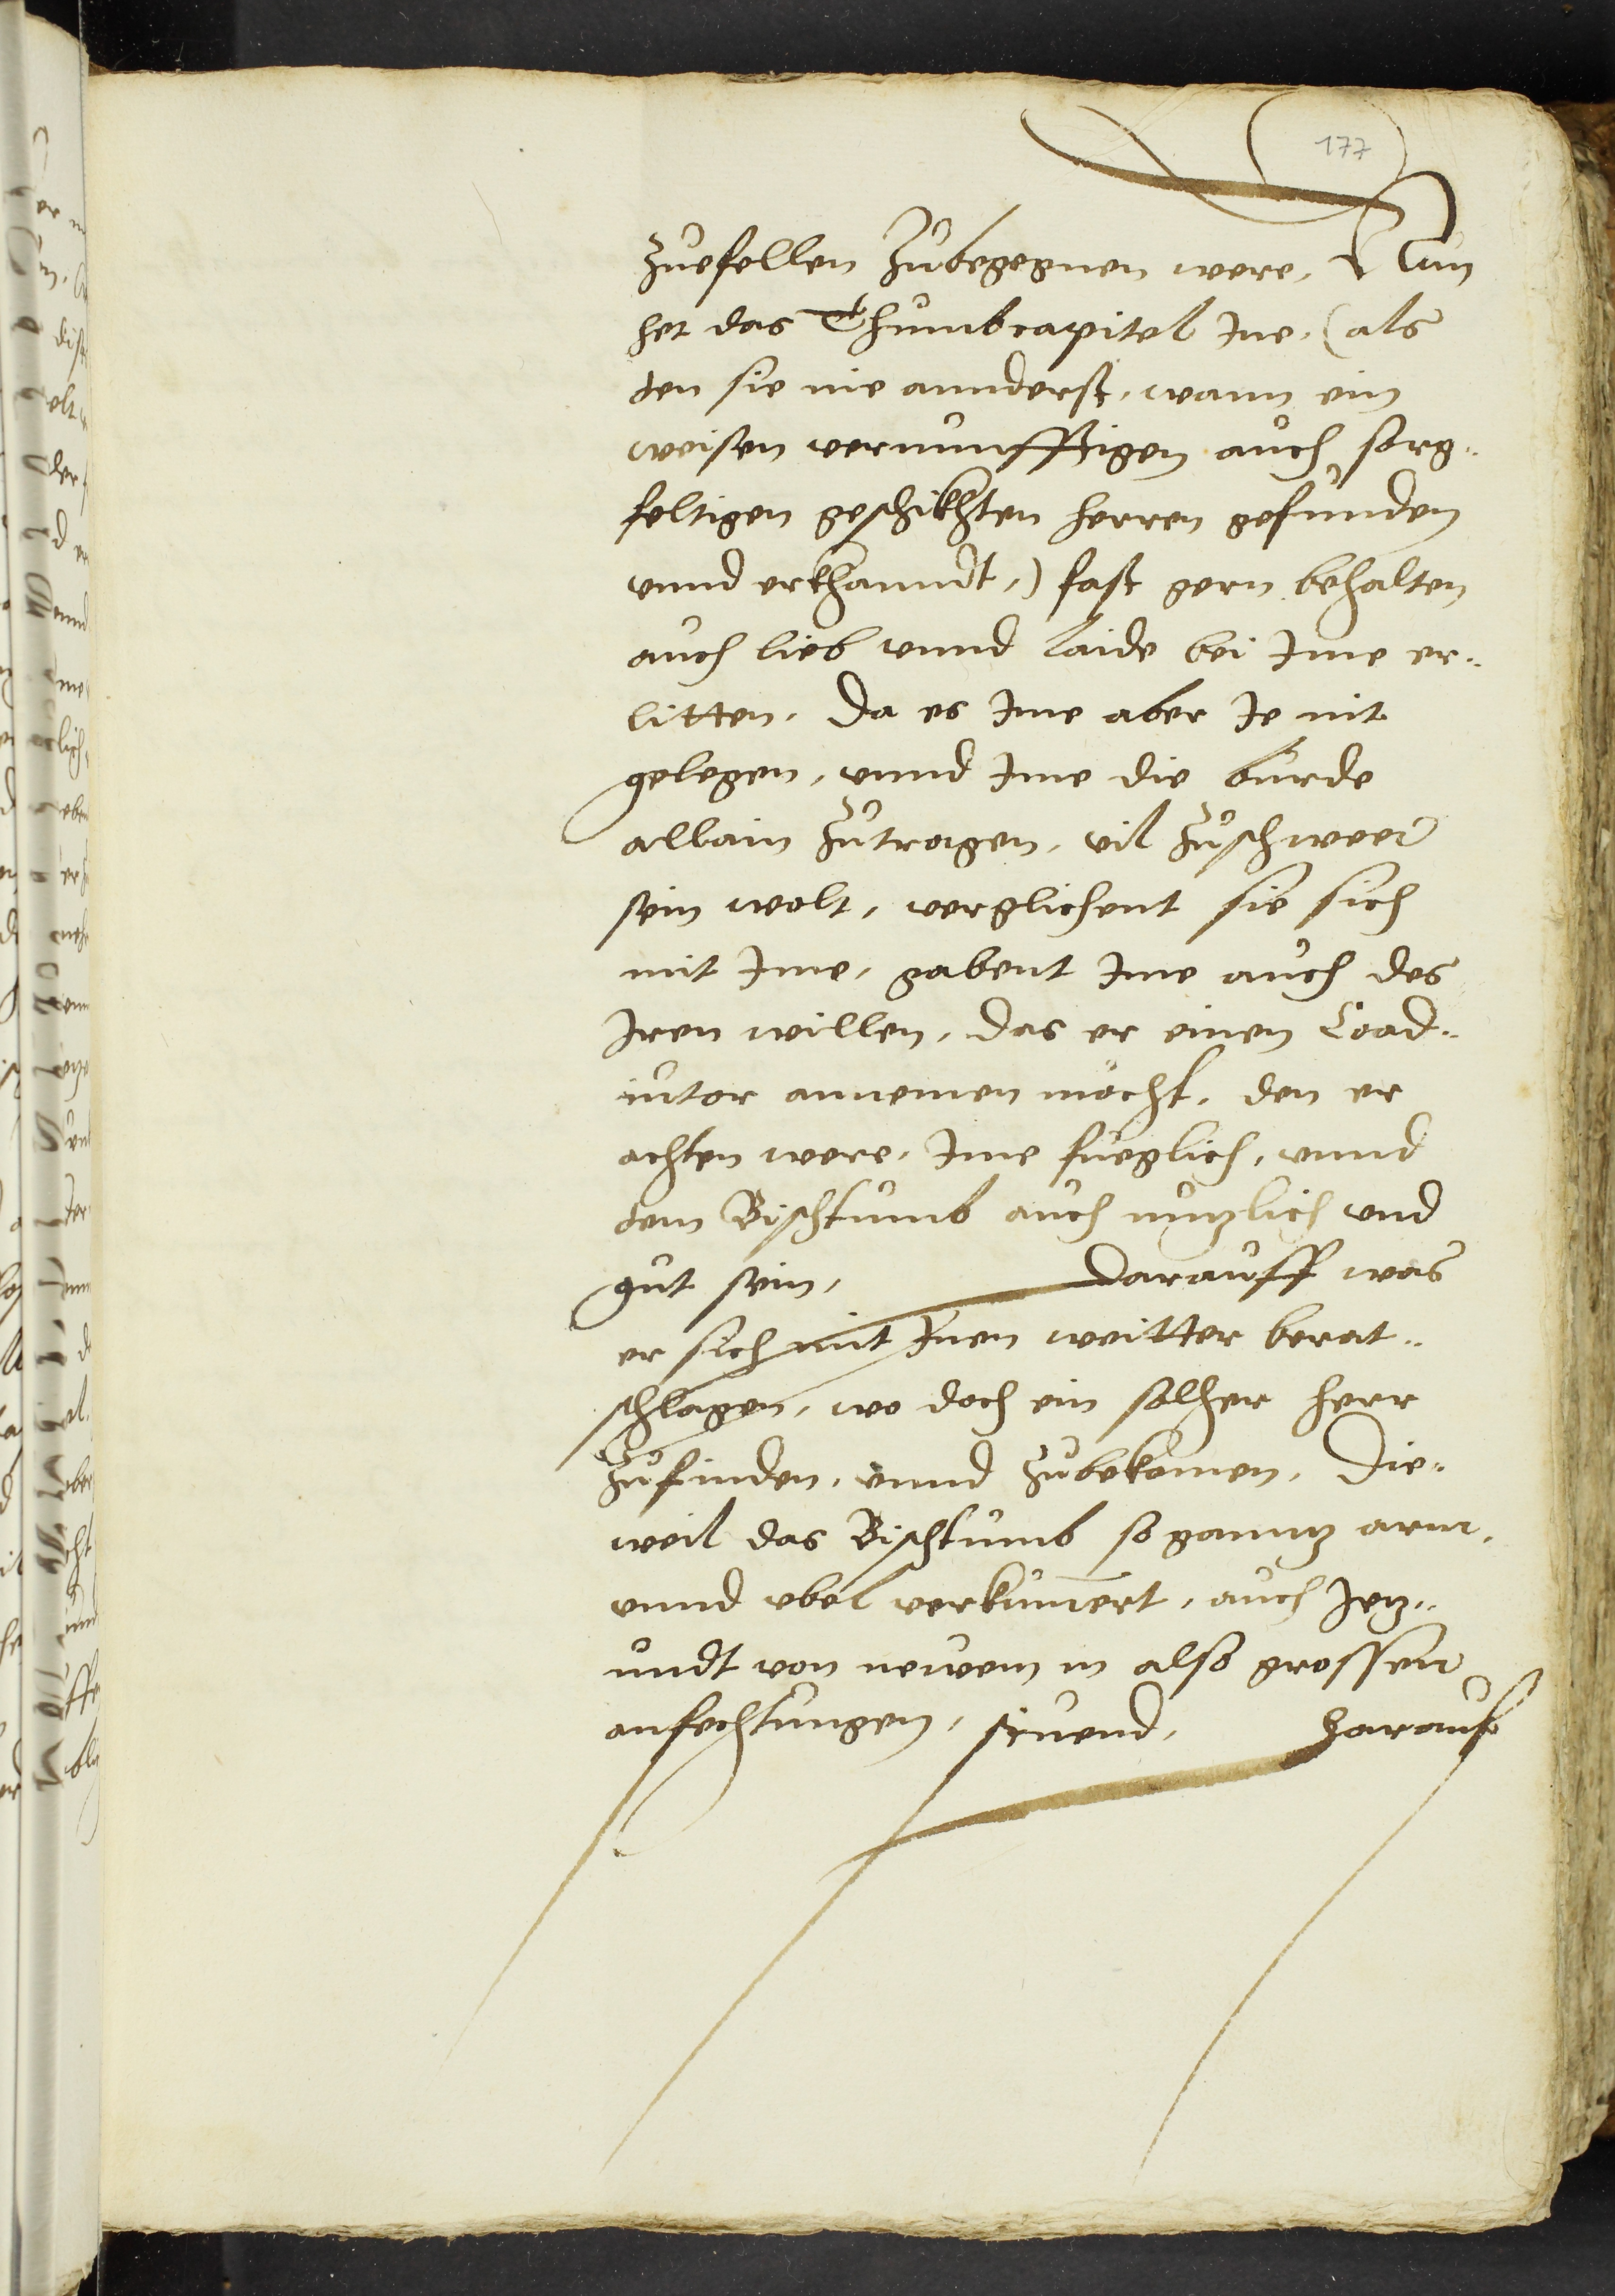 177
Zuefellen Zubegegnen were, Nun
het das Thumbcapitel Ine, (als
den sie nie annderst, wann ein
weisen vernunfftigen auch sorg-
feltigen geschikhten herren gefunden
vnnd erkhanndt,) fast gern behalten
auch lieb vnnd laide bei Ime er-
litten, Da es Ime aber Je nit
gelegen, vnnd Ime die burde
allain Zutragen, vil Zuschweer
sein wolt, verglichent sie sich
mit Ime, gabent Ime auch des
Iren willen, das er einen Coad-
iutor annemen möcht, den er
achten were, Ime fueglich, vnnd
dem Bischtumb auch nutzlich vnd
gut sein, Darauff was
er sich mit Inen weitter berat-
schlagen, wo doch ein solher herr
Zufinden, vnnd Zubekomen, Die-
weil das Bischtumb so ganntz arm,
vnnd vbel verkumert, auch Jetz-
undt von newem in also grossen
anfechtungen, stuend, Harauf